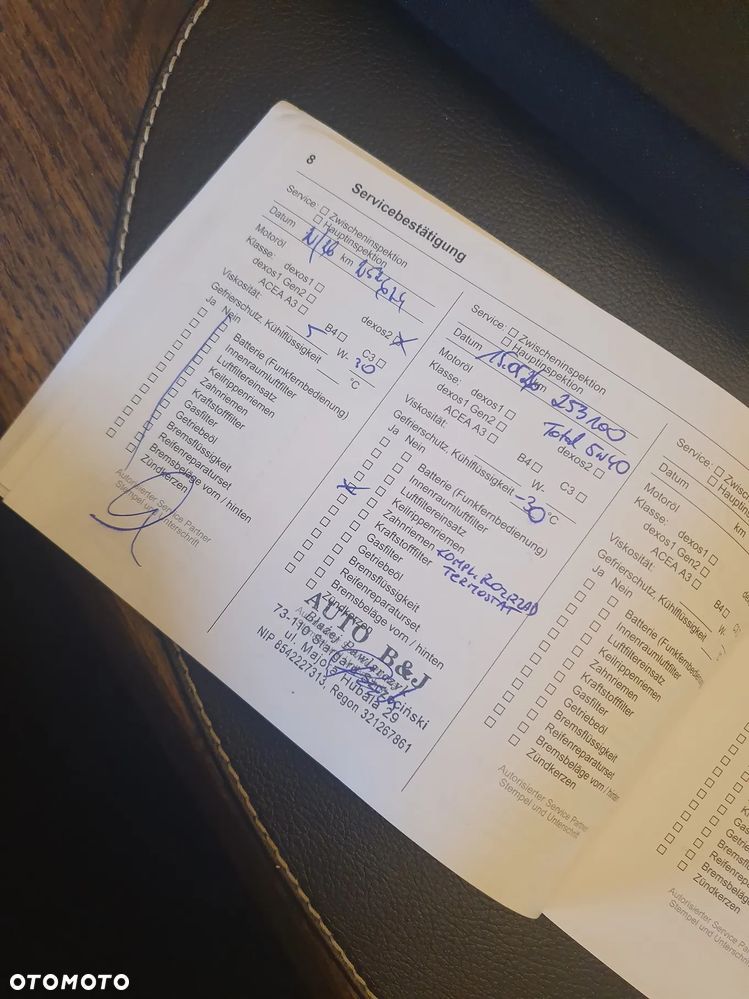 8
Servicebestätigung
Service: Zwischeninspektion
Hauptinspektion
Datum km
Motoröl
Klasse: dexos1 dexos2
dexos1 Gen2
ACEA A3 B4 C3
Viskosität: 5 W- 30
Gefrierschutz, Kühlflüssigkeit °C
Ja Nein
Batterie (Funkfernbedienung)
Innenraumluftfilter
Luftfiltereinsatz
Keilrippenriemen
Zahnriemen
Kraftstofffilter
Gasfilter
Getriebeöl
Bremsflüssigkeit
Reifenreparaturset
Bremsbeläge vorn / hinten
Zündkerzen
Autorisierter Service Partner
Stempel und Unterschrift
Service: Zwischeninspektion
Hauptinspektion
Datum km 253100
Motoröl Total 5W40
Klasse: dexos1 dexos2
dexos1 Gen2
ACEA A3 B4 C3
Viskosität: W-
Gefrierschutz, Kühlflüssigkeit -30 °C
Ja Nein
Batterie (Funkfernbedienung)
Innenraumluftfilter
Luftfiltereinsatz
Keilrippenriemen
Zahnriemen KOMPL. ROZRZĄD
Kraftstofffilter TERMOSTAT
Gasfilter
Getriebeöl
Bremsflüssigkeit
Reifenreparaturset
Bremsbeläge vorn / hinten
Zündkerzen
AUTO B&J
73-110 Stargard
ul. Majora Hubala 29
NIP 8542227313, Regon 321267861
Service:
Datum km
Motoröl
Klasse: dexos1
dexos1 Gen2
ACEA A3 B4
Viskosität: W-
Gefrierschutz, Kühlflüssigkeit
Ja Nein
Batterie
Innenraumluftfilter
Luftfiltereinsatz
Keilrippenriemen
Zahnriemen
Kraftstofffilter
Gasfilter
Getriebeöl
Bremsflüssigkeit
Reifenreparaturset
Bremsbeläge vorn /
Zündkerzen
Autorisierter Service Partner
Stempel und Unterschrift
Reifenreparaturset
Bremsbeläge
Zündkerzen
Autorisierter Service
Stempel und Unterschrift
OTOMOTO